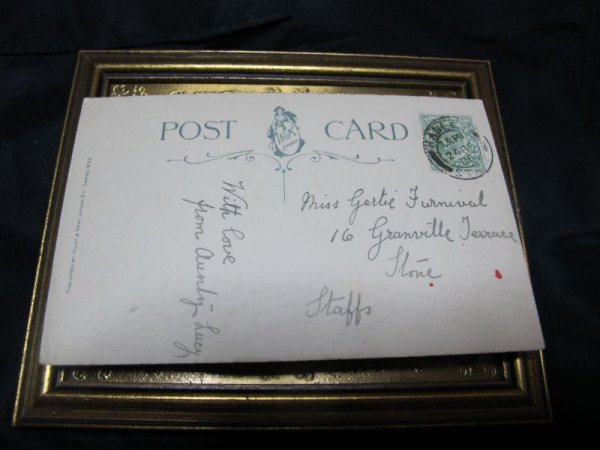 POST CARD
With love
from Aunty Lucy
Miss Gertie Furnival
16 Granville Terrace
Stone
Staffs